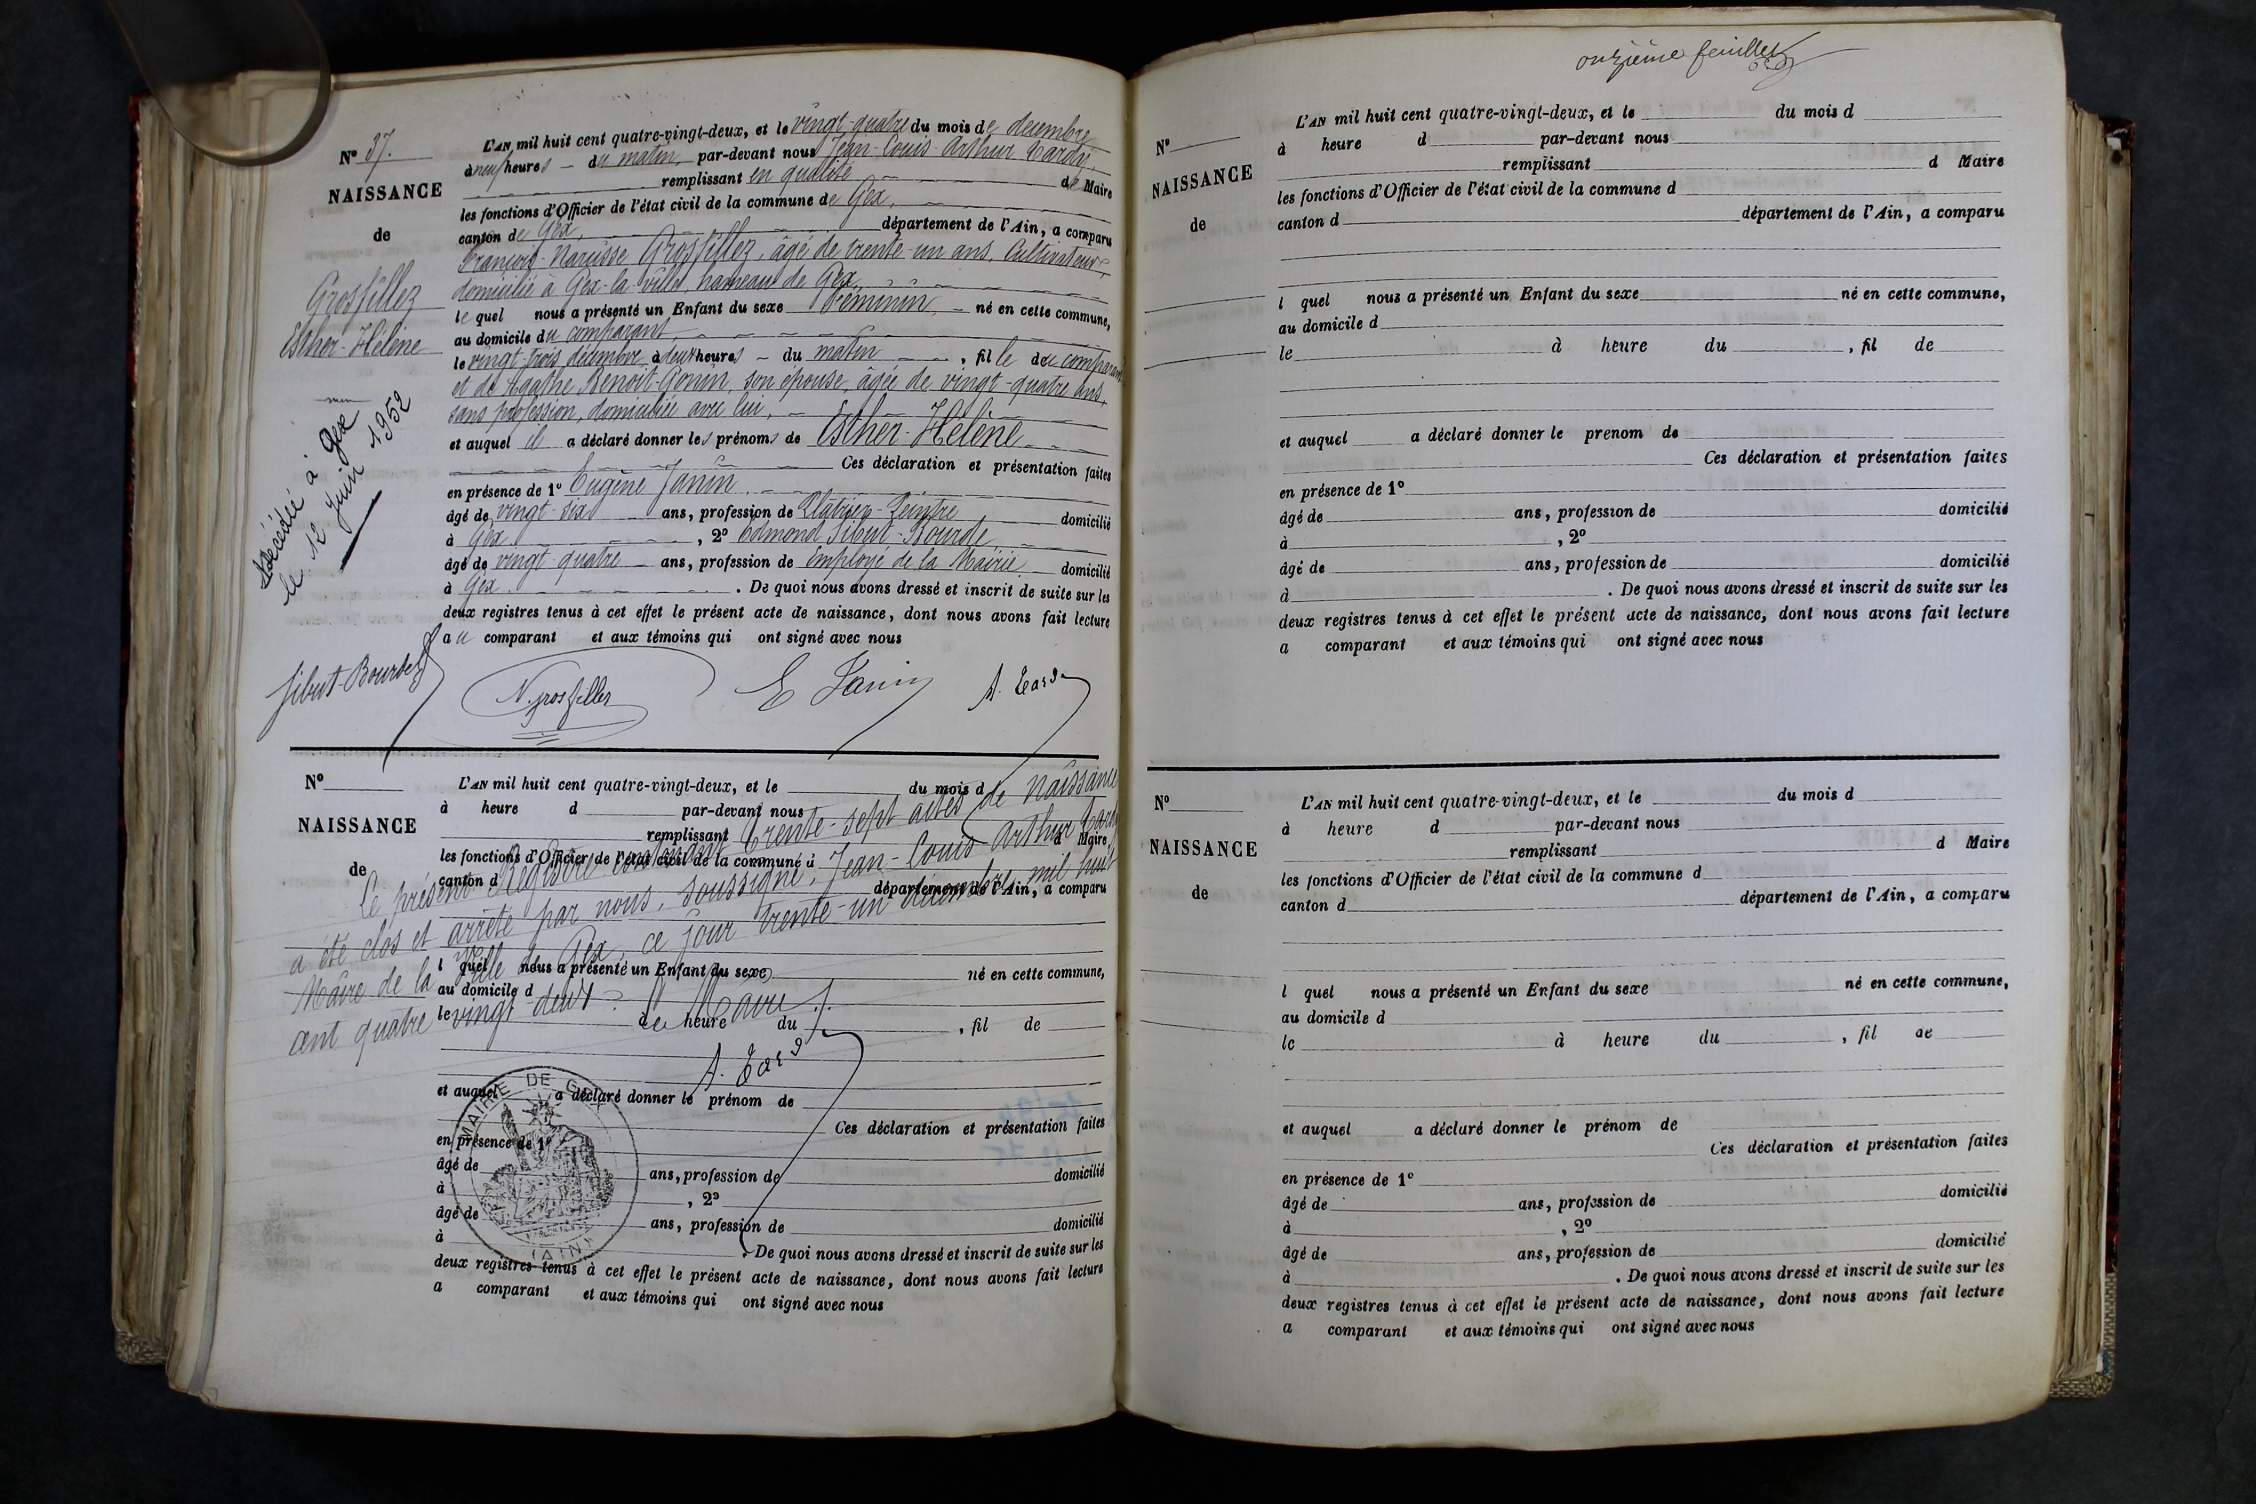 N° 37.
NAISSANCE
de
Grosfillez
Esther-Hélène
Décédée à Gex
le 12 Juin 1952
L'AN mil huit cent quatre-vingt-deux, et le vingt-quatre du mois de décembre
à neuf heures du matin, par-devant nous Jean-Louis Arthur Tardy,
remplissant en qualité de Maire
les fonctions d'Officier de l'état civil de la commune de Gex,
canton de Gex, département de l'Ain, a comparu
François-Narcisse Grosfillez, âgé de trente-un ans, Cultivateur,
domicilié à Gex-la-ville, hameau de Gex,
lequel nous a présenté un Enfant du sexe Féminin, né en cette commune,
au domicile du comparant,
le vingt-trois décembre à deux heures du matin, fille du comparant
et de Agathe Benoit-Gonin, son épouse, âgée de vingt-quatre ans,
sans profession, domiciliée avec lui,
et auquel il a déclaré donner les prénoms de Esther-Hélène
Ces déclaration et présentation faites
en présence de 1° Eugène Janin,
âgé de vingt-six ans, profession de Plâtrier-Peintre domicilié
à Gex, 2° Edmond Sibut-Bourde
âgé de vingt quatre ans, profession de Employé de la Mairie, domicilié
à Gex. De quoi nous avons dressé et inscrit de suite sur les
deux registres tenus à cet effet le présent acte de naissance, dont nous avons fait lecture
au comparant et aux témoins qui ont signé avec nous
Sibut-Bourde N. grosfillez E Janin A. Tardy
N°
NAISSANCE
de
L'AN mil huit cent quatre-vingt-deux, et le du mois d
à heure d par-devant nous
remplissant d Maire
les fonctions d'Officier de l'état civil de la commune d
canton d département de l'Ain, a comparu
l quel nous a présenté un Enfant du sexe né en cette commune,
au domicile d
le à heure du , fil de
Le présent Registre contenant trente-sept actes de naissance
a été clos et arrêté par nous, soussigné, Jean-Louis Arthur Tardy
Maire de la Ville de Gex, ce jour trente-un décembre mil huit
cent quatre vingt-deux. Le Maire,
A. Tardy
et auquel a déclaré donner le prénom de
Ces déclaration et présentation faites
en présence de 1°
âgé de ans, profession de domicilié
à , 2°
âgé de ans, profession de domicilié
à . De quoi nous avons dressé et inscrit de suite sur les
deux registres tenus à cet effet le présent acte de naissance, dont nous avons fait lecture
a comparant et aux témoins qui ont signé avec nous
MAIRIE DE GEX
(AIN)
onzième feuillet
N°
NAISSANCE
de
L'AN mil huit cent quatre-vingt-deux, et le du mois d
à heure d par-devant nous
remplissant d Maire
les fonctions d'Officier de l'état civil de la commune d
canton d département de l'Ain, a comparu
l quel nous a présenté un Enfant du sexe né en cette commune,
au domicile d
le à heure du , fil de
et auquel a déclaré donner le prenom de
Ces déclaration et présentation faites
en présence de 1°
âgé de ans, profession de domicilié
à , 2°
âgé de ans, profession de domicilié
à . De quoi nous avons dressé et inscrit de suite sur les
deux registres tenus à cet effet le présent acte de naissance, dont nous avons fait lecture
a comparant et aux témoins qui ont signé avec nous
N°
NAISSANCE
de
L'AN mil huit cent quatre-vingt-deux, et le du mois d
à heure d par-devant nous
remplissant d Maire
les fonctions d'Officier de l'état civil de la commune d
canton d département de l'Ain, a comparu
l quel nous a présenté un Enfant du sexe né en cette commune,
au domicile d
le à heure du , fil de
et auquel a déclaré donner le prénom de
Ces déclaration et présentation faites
en présence de 1°
âgé de ans, profession de domicilié
à , 2°
âgé de ans, profession de domicilié
à . De quoi nous avons dressé et inscrit de suite sur les
deux registres tenus à cet effet le présent acte de naissance, dont nous avons fait lecture
a comparant et aux témoins qui ont signé avec nous